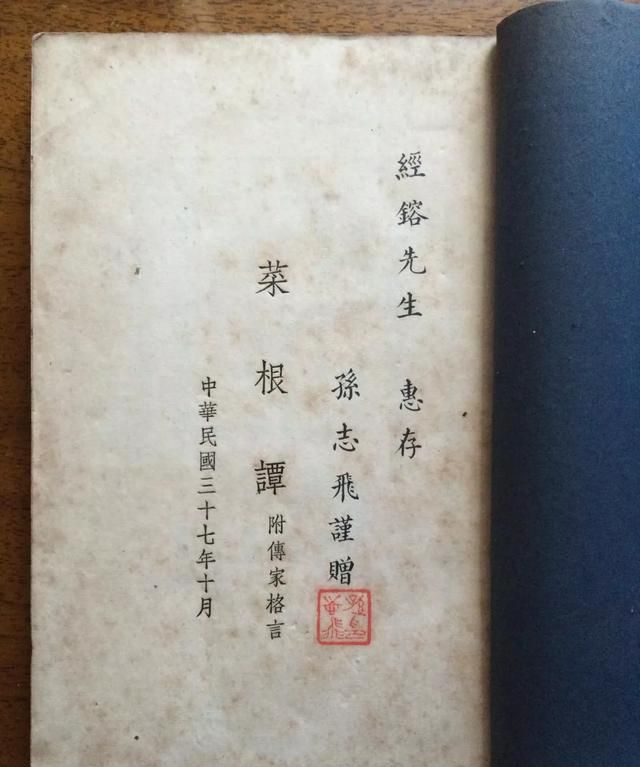 經鎔先生 惠存
孫志飛謹贈
菜根譚 附傳家格言
中華民國三十七年十月